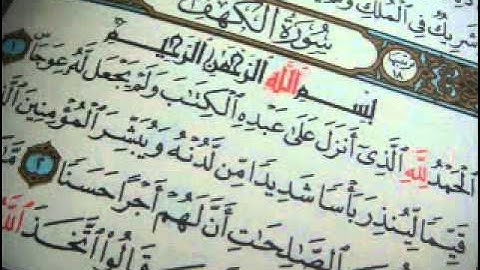 شَرِيكٌ فِي ٱلْمُلْكِ
سُورَةُ ٱلْكَهْفِ
١٨
بِسْمِ ٱللَّهِ ٱلرَّحْمَٰنِ ٱلرَّحِيمِ
ٱلْحَمْدُ لِلَّهِ ٱلَّذِىٓ أَنزَلَ عَلَىٰ عَبْدِهِ ٱلْكِتَٰبَ وَلَمْ يَجْعَل لَّهُۥ عِوَجَاۜ ١
قَيِّمًا لِّيُنذِرَ بَأْسًا شَدِيدًا مِّن لَّدُنْهُ وَيُبَشِّرَ ٱلْمُؤْمِنِينَ
ٱلصَّٰلِحَٰتِ أَنَّ لَهُمْ أَجْرًا حَسَنًا ٢
قَالُوا۟ ٱتَّخَذَ ٱللَّهُ